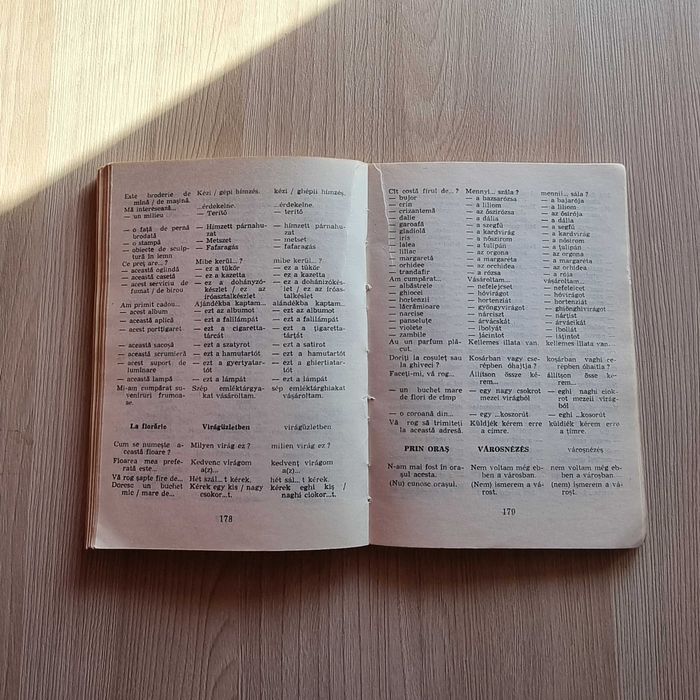 Este broderie de mînă / de maşină. Kézi / gépi hímzés. kézi / ghépii hímzés.
Mă interesează... ...érdekelne. ...érdekelne.
— un milieu — Terítő — teritő
— o faţă de pernă brodată — Hímzett párnahuzat — hímzett párnahuzat
— o stampă — Metszet — metset
— obiecte de sculptură în lemn — Fafaragás — fafaragás
Ce preţ are...? Mibe kerül...? mibe kerül...?
— această oglindă — ez a tükör — ez a tükör
— această casetă — ez a kazetta — ez a kazetta
— acest serviciu de fumat / de birou — ez a dohányzókészlet / ez az íróasztalkészlet — ez a dohánizókéslet / ez az íróastalkéslet
Am primit cadou... Ajándékba kaptam... aiándékba kaptam...
— acest album — ezt az albumot — ezt az albumot
— această aplică — ezt a falilámpát — ezt a falilámpát
— acest portţigaret — ezt a cigarettatárcát — ezt a ţigarettatárţát
— această sacoşă — ezt a szatyrot — ezt a satirot
— această scrumieră — ezt a hamutartót — ezt a hamutartót
— acest suport de luminare — ezt a gyertyatartót — ezt a ghiertiatartót
— această lampă — ezt a lámpát — ezt a lámpát
Mi-am cumpărat suveniruri frumoase. Szép emléktárgyakat vásároltam. sép emléktárghiakat vásároltam.
La florărie Virágüzletben virágüzletben
Cum se numeşte această floare? Milyen virág ez? milien virág ez?
Floarea mea preferată este... Kedvenc virágom a(z)... kedvenţ virágom a(z)...
Vă rog şapte fire de... Hét szál... t kérek. hét sál... t kérek.
Doresc un buchet mic / mare de... Kérek egy kis / nagy csokor...t. kérek eghi kiş / naghi ciokor...t.
178
Cît costă firul de...? Mennyi... szála? menni... sála?
— bujor — a bazsarózsa — a bajarója
— crin — a liliom — a liliom
— crizantemă — az őszirózsa — az ősirója
— dalie — a dália — a dália
— garoafă — a szegfű — a segfű
— gladiolă — a kardvirág — a kardvirág
— iris — a nőszirom — a nősirom
— lalea — a tulipán — a tulipán
— liliac — az orgona — az orgona
— margaretă — a margareta — a margareta
— orhidee — az orchidea — az orhidea
— trandafir — a rózsa — a rója
Am cumpărat... Vásároltam... vásároltam...
— albăstrele — nefelejcset — nefeleicet
— ghiocei — hóvirágot — hóvirágot
— hortenzii — hortenziát — hortenziát
— lăcrămioare — gyöngyvirágot — ghiönghivirágot
— narcise — nárciszt — nárţist
— panseluţe — árvácskát — árvácikát
— violete — ibolyát — iboliát
— zambile — jácintot — iáţintot
Au un parfum plăcut. Kellemes illata van. kellemeş illata van.
Doriţi la coşuleţ sau la ghiveci? Kosárban vagy cserépben óhajtja? koşárban vaghi cerépben óhaitia?
Faceţi-mi, vă rog... Állítson össze kérem... állítşon össe kérem...
— un buchet mare de flori de cîmp — egy nagy csokrot mezei virágból — eghi naghi ciokrot mezei virágból
— o coroană din... — egy ...koszorút — eghi ...kosorút
Vă rog să trimiteţi la această adresă. Küldjék kérem erre a címre. küldiék kérem erre a ţímre.
PRIN ORAŞ VÁROSNÉZÉS vároşnézés
N-am mai fost în oraşul acesta. Nem voltam még ebben a városban. nem voltam még ebben a városban.
(Nu) cunosc oraşul. (Nem) ismerem a várost. (nem) işmerem a várost.
179